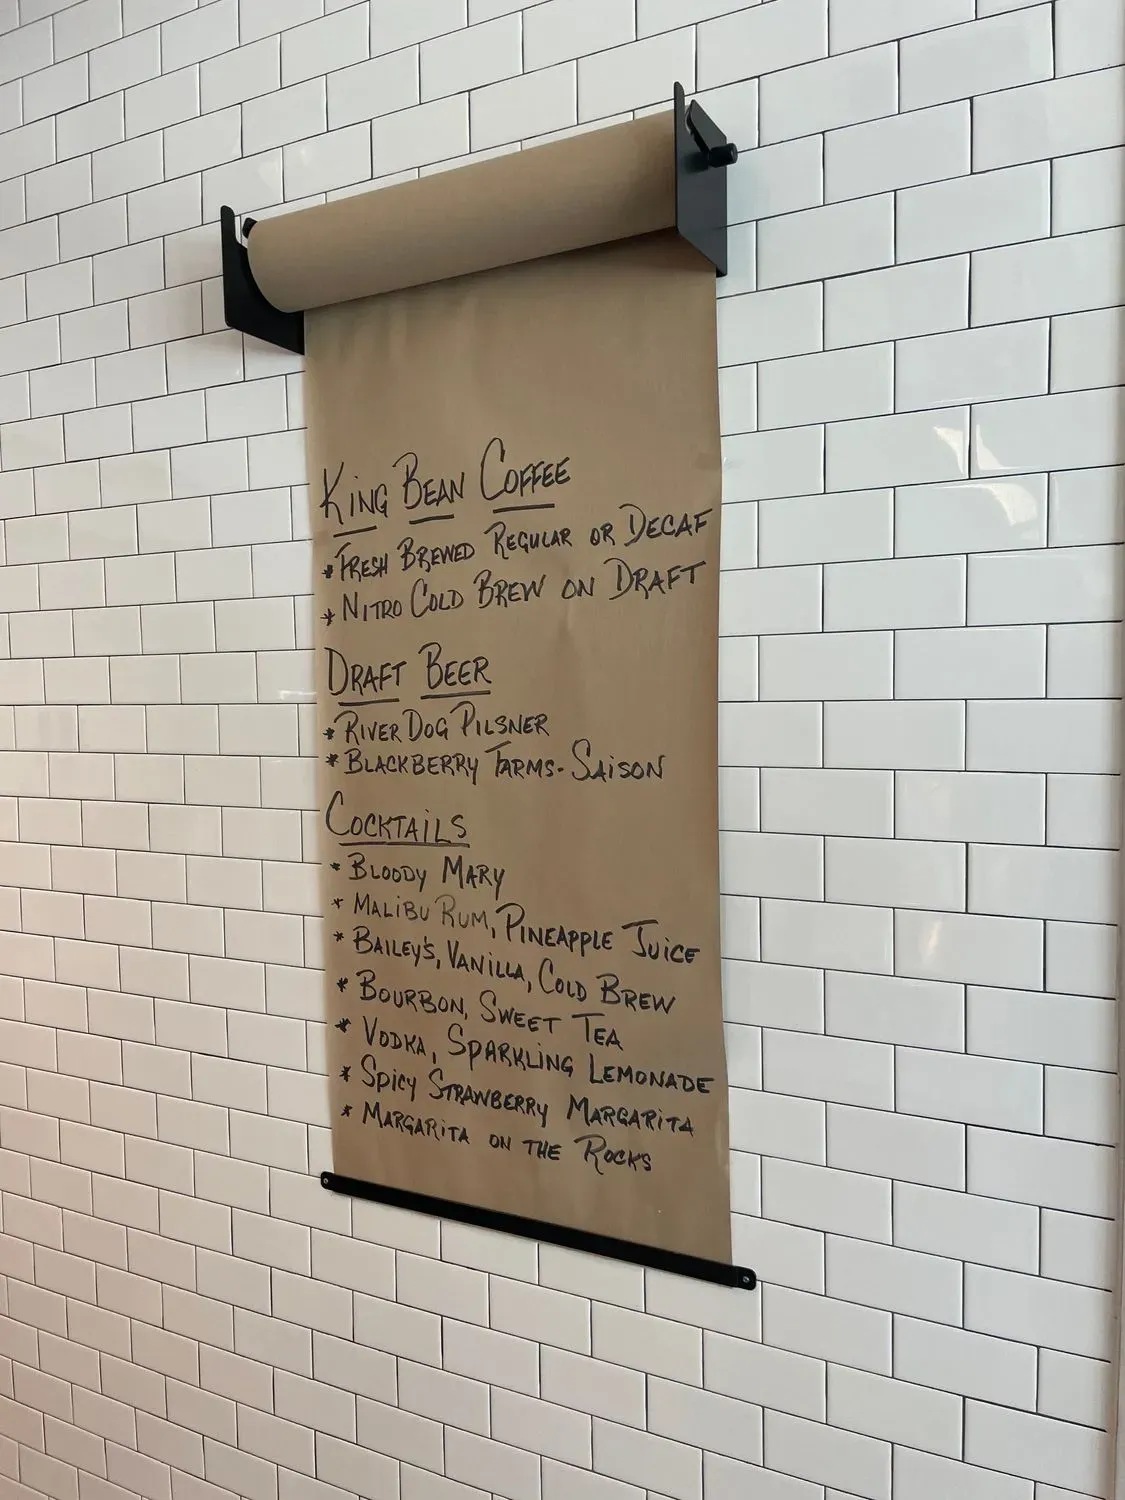 King Bean Coffee
* Fresh Brewed Regular or Decaf
* Nitro Cold Brew on Draft
Draft Beer
* River Dog Pilsner
* Blackberry Farms - Saison
Cocktails
* Bloody Mary
* Malibu Rum, Pineapple Juice
* Bailey's, Vanilla, Cold Brew
* Bourbon, Sweet Tea
* Vodka, Sparkling Lemonade
* Spicy Strawberry Margarita
* Margarita on the Rocks